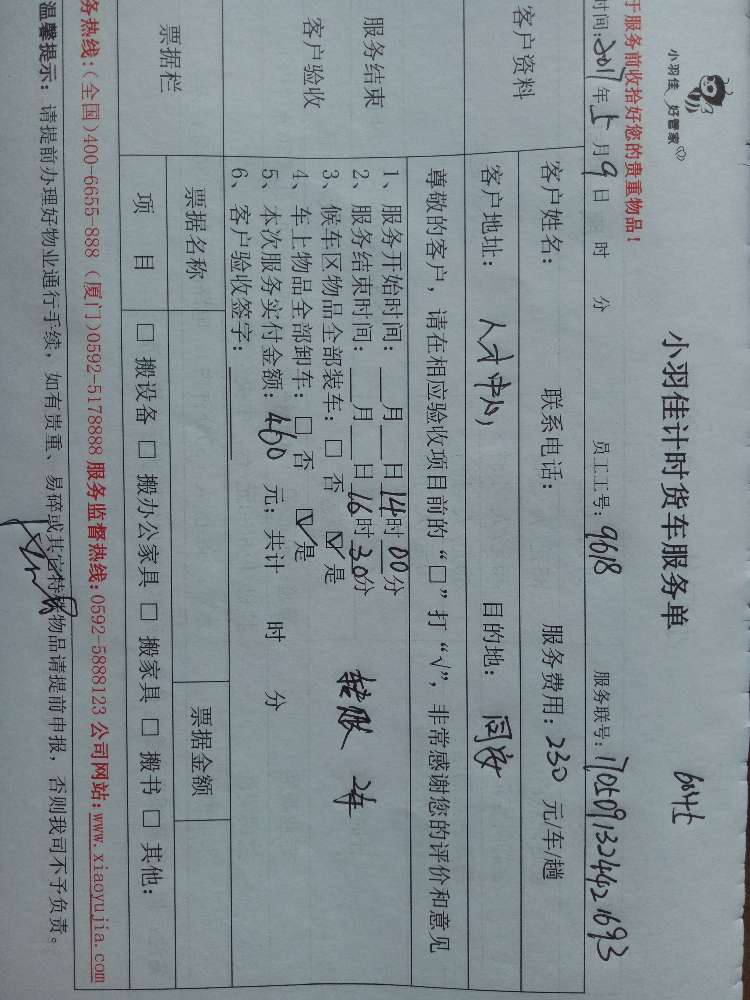 小羽佳 好管家
小羽佳计时货车服务单
于服务前收拾好您的贵重物品！
时间：2017年5月9日 时 分 员工工号：9618 服务联号：17050913244921693
客户资料
客户姓名： 联系电话： 服务费用：230 元/车/趟
客户地址：人才中心 目的地：同安
服务结束
客户验收
尊敬的客户，请在相应验收项目前的“□”打“√”，非常感谢您的评价和意见
1、服务开始时间：__月__日14时00分
2、服务结束时间：__月__日16时30分
3、候车区物品全部装车：□ 否 ☑ 是
4、车上物品全部卸车：□ 否 ☑ 是
5、本次服务实付金额：460 元；共计 时 分
6、客户验收签字：
票据栏
票据名称 票据金额
项 目 □ 搬设备 □ 搬办公家具 □ 搬家具 □ 搬书 □ 其他：
务热线：(全国)400-6655-888 (厦门)0592-5178888 服务监督热线：0592-5888123 公司网站：www.xiaoyujia.com
温馨提示：请提前办理好物业通行手续，如有贵重、易碎或其它特殊物品请提前申报，否则我司不予负责。